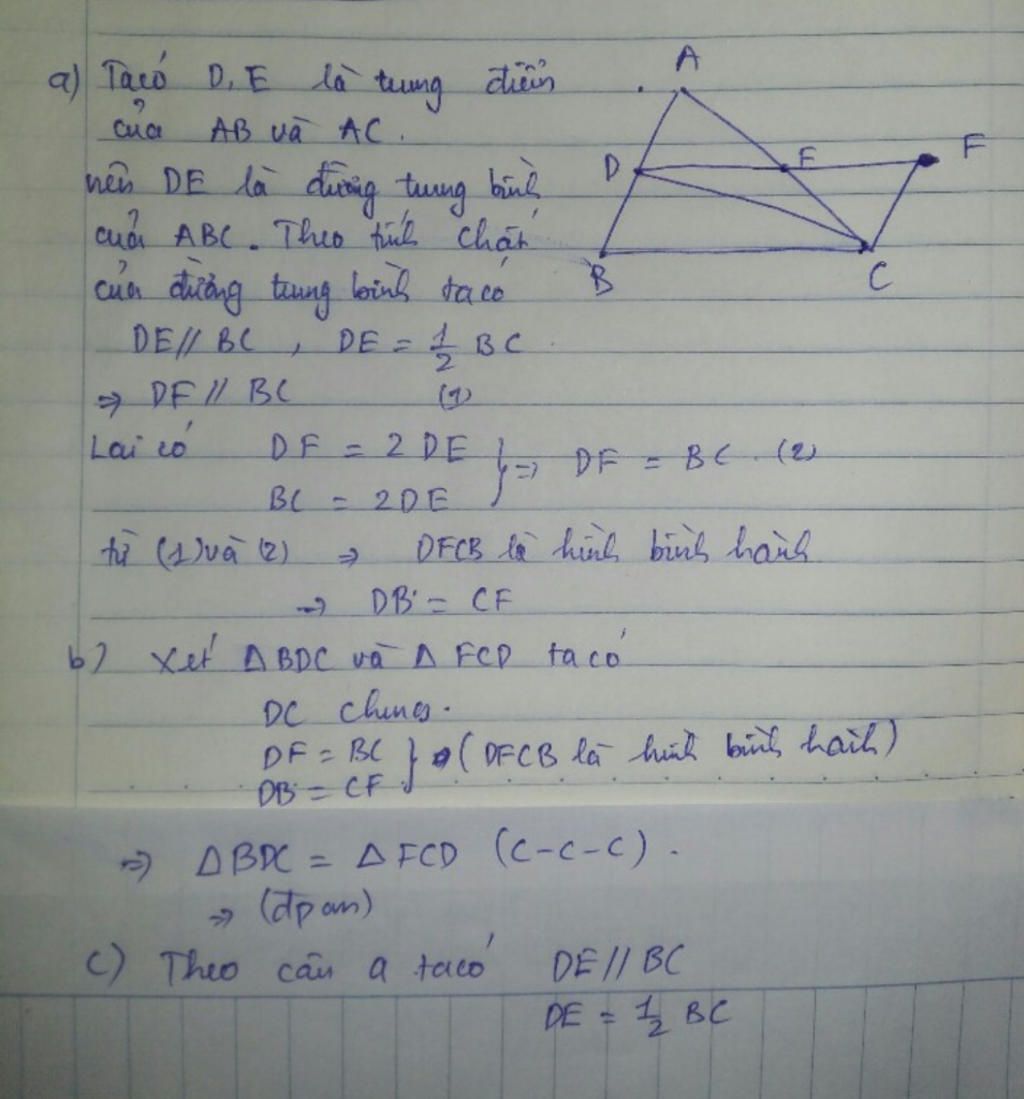 a) Ta có D, E là trung điểm
của AB và AC.
nên DE là đường trung bình
của ABC. Theo tính chất
của đường trung bình ta có
DE // BC , DE = 1/2 BC
⇒ DF // BC (1)
Lại có DF = 2 DE
BC = 2DE } ⇒ DF = BC. (2)
từ (1) và (2) ⇒ DFCB là hình bình hành
⇒ DB = CF
b) Xét ΔBDC và Δ FCD ta có
DC chung.
DF = BC
DB = CF } (DFCB là hình bình hành)
⇒ ΔBDC = ΔFCD (c-c-c).
⇒ (đpcm)
c) Theo câu a ta có DE // BC
DE = 1/2 BC
A
D
E
F
B
C